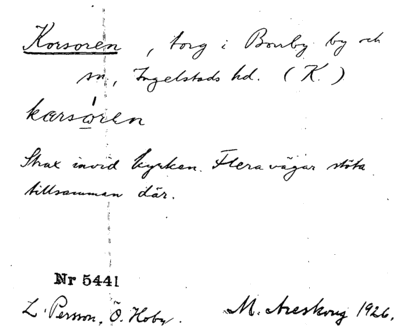 Korsoren, torg i Bonby by och
sn, Ingelstads hd. (K.)
kærsåren
Strax invid kyrkan. Flera vägar stöta
tillsamman där.
Nr 5441
L. Persson, Ö. Hoby. M. Areskoug 1926.